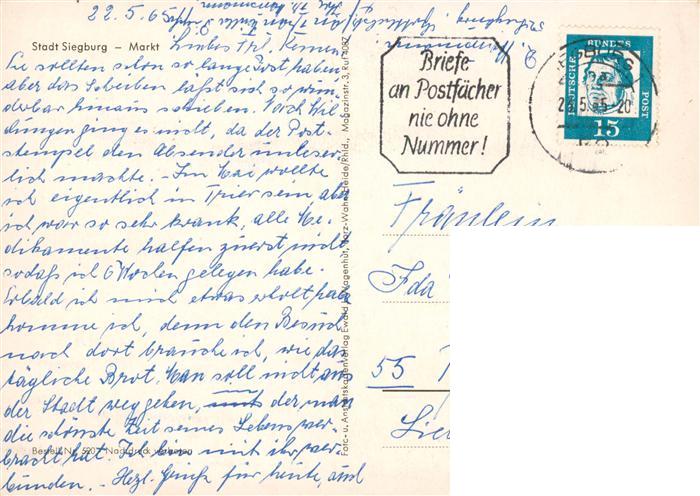 22.5.65
Stadt Siegburg – Markt
Liebes Frl. Kemen
Sie sollten schon so lange Post haben
aber das Schreiben läßt sich so wun-
derbar hinaus schieben. Nach Wil-
dungen ging es nicht, da der Post-
stempel den Absender unleser-
lich machte. – Im Mai wollte
ich eigentlich in Trier sein, aber
ich war so sehr krank, alle Me-
dikamente halfen zuerst nicht
sodaß ich 6 Wochen gelegen habe.
Sobald ich mich etwas erholt habe
komme ich, denn den Besuch
nach dort brauche ich, wie das
tägliche Brot. Man soll nicht aus
der Stadt weggehen, in der man
die schönste Zeit seines Lebens ver-
bracht hat. Ich bin mit ihr ver-
bunden. – Herzl. Grüße für heute, auch
Bestell-Nr. Nachdruck verboten
Foto- u. Ansichtskartenverlag Ewald Wagenhut, Magazinstr. 3, Ruf 4067
Briefe
an Postfächer
nie ohne
Nummer!
DEUTSCHE BUNDESPOST
15
Fräulein
Ida
55